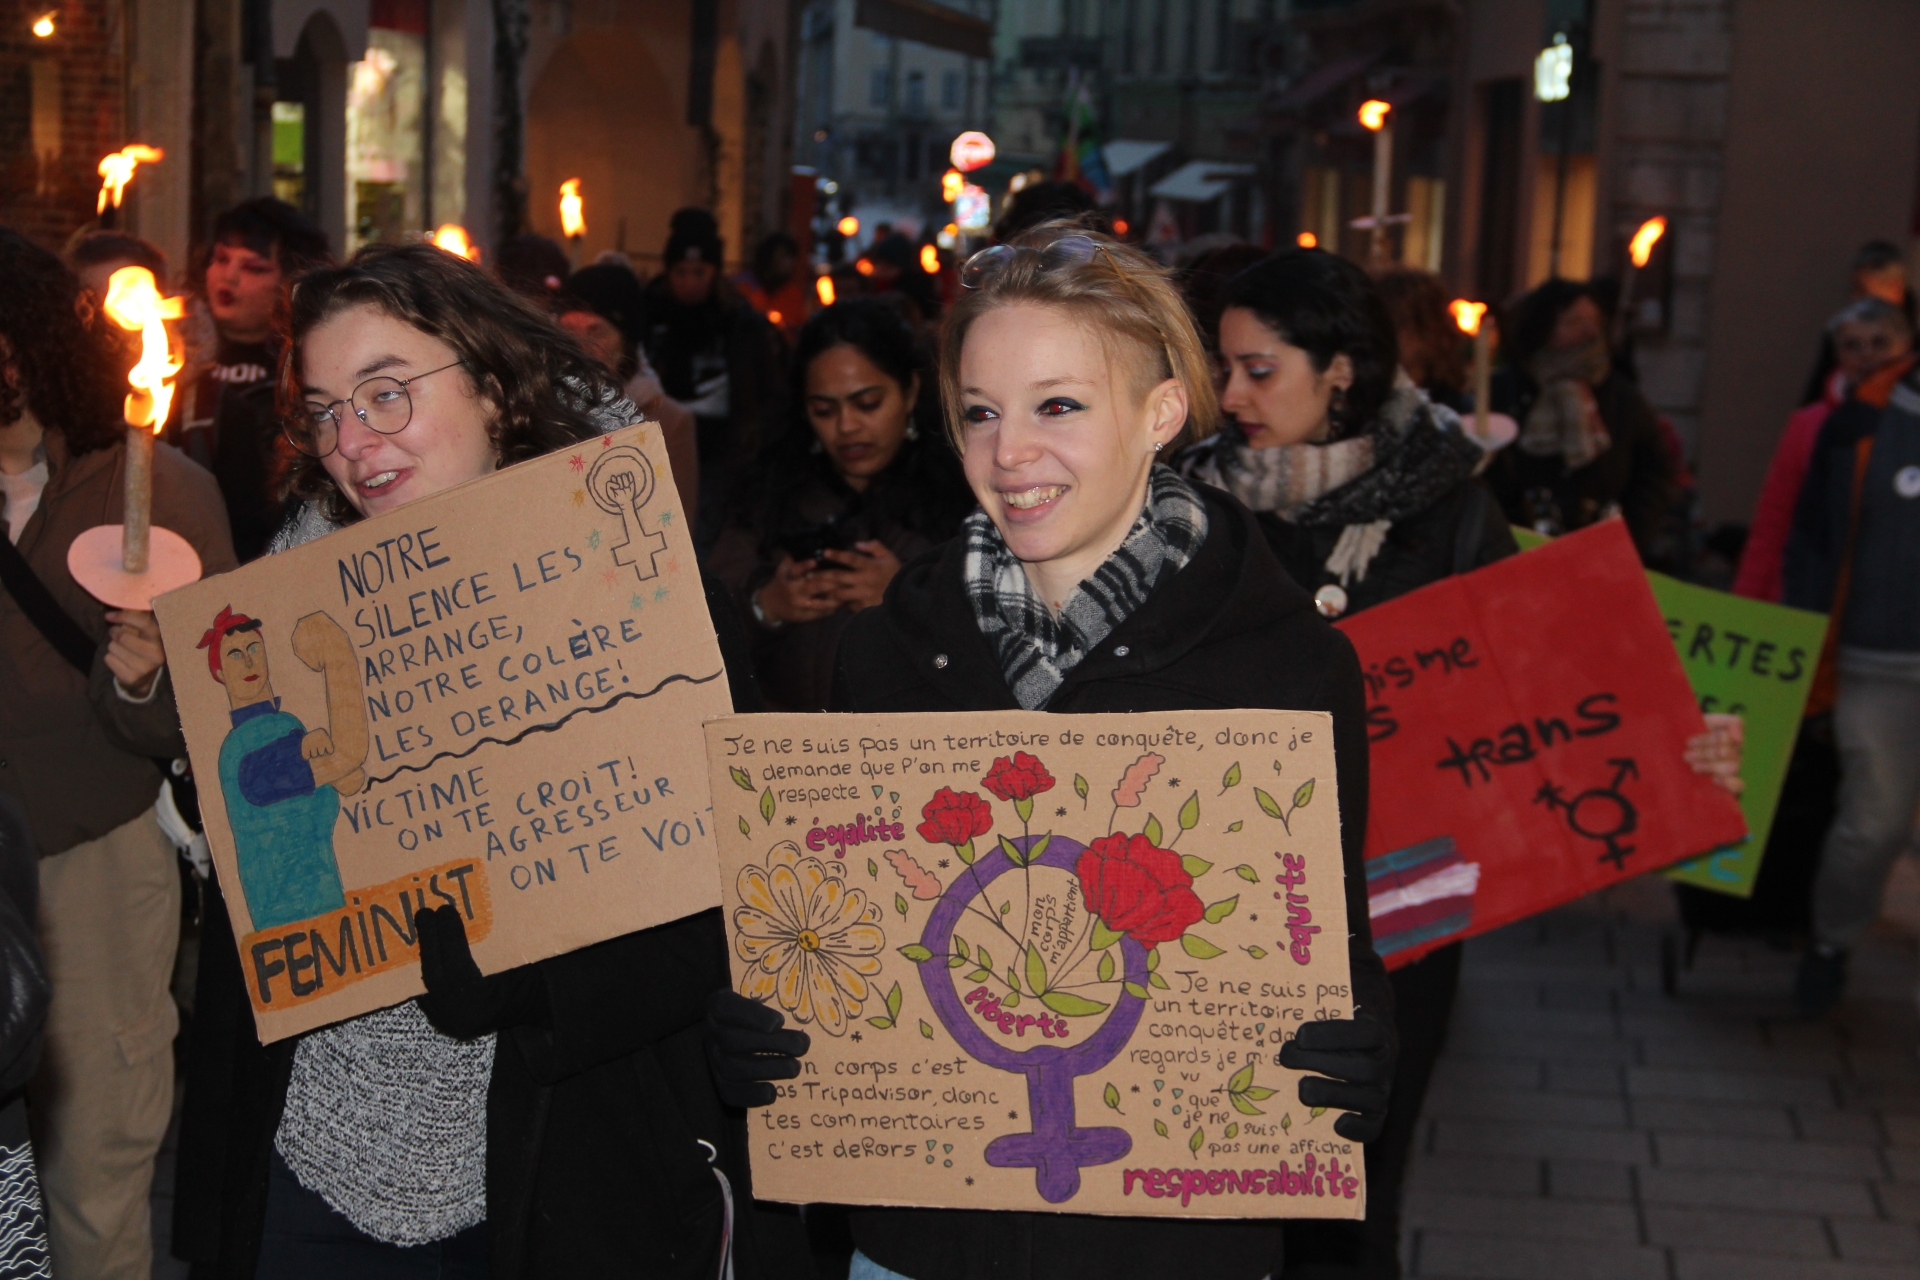 NOTRE
SILENCE LES
ARRANGE,
NOTRE COLÈRE
LES DERANGE!
VICTIME
ON TE CROIT!
AGRESSEUR
ON TE VOIT
FEMINIST
Je ne suis pas un territoire de conquête, donc je
demande que l'on me
respecte !!
égalité
mon
corps
m'appartient
liberté
équité
corps c'est
Tripadvisor, donc
tes commentaires
c'est dehors !!
Je ne suis pas
un territoire de
conquête!
regards je m'e
vu
que
je ne
suis
pas une affiche
responsabilité
trans
ERTES